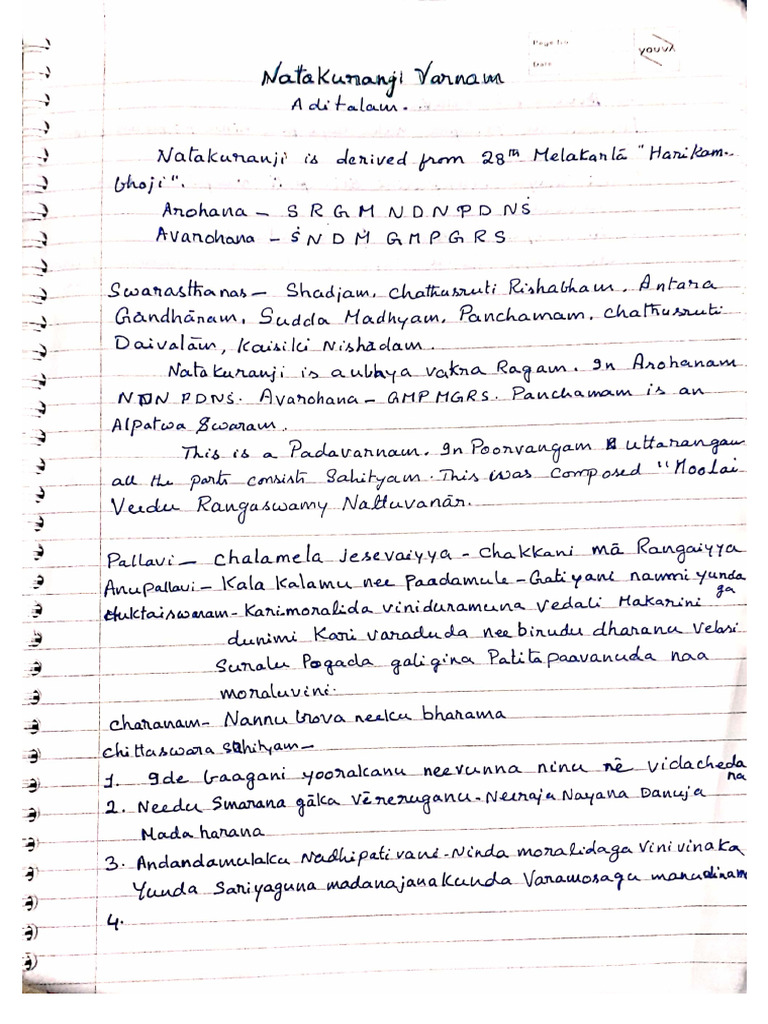 Page No
Date
youva
Natakuranji Varnam
Aditalam.
Natakuranji is derived from 28th Melakartā "Harikam-
bhoji".
Arohana – S R G M N D N P D N Ṡ
Avarohana – Ṡ N D M G M P G R S
Swarasthanas – Shadjam, Chathusruti Rishabham, Antara
Gāndhāram, Sudda Madhyam, Panchamam, Chathusruti
Daivatām, Kaisiki Nishadam.
Natakuranji is a ubhya vakra Ragam. In Arohanam
NDN PDNṠ. Avarohana – GMP MGRS. Panchamam is an
Alpatwa Swaram.
This is a Padavarnam. In Poorvangam & uttarangam
all the parts consists Sahityam. This was composed "Moolai
Veedu Rangaswamy Nattuvanār.
Pallavi – Chalamela Jesevaiyya – Chakkani mā Rangaiyya
Anupallavi – Kala Kalamu nee Paadamule – Gatiyani nammi yunda
ga
Muktaiswaram – Karimoralida viniduramuna Vedali Makarini
dunimi Kari varaduda nee birudu dharanu Velasi
Suralu Pogada galigina Patita paavanuda naa
moraluvini.
Charanam – Nannu brova neeku bharama
Chittaswara Sahityam –
1. Ide baagani yoorakanu neevunna ninu nē vidacheda
na
2. Needu Smarana gāka vēreruganu – Neeraja Nayana Danuja
Mada harana
3. Andandamulaku Nadhipativani – Ninda moralidaga Vini vinaka
Yunda Sariyaguna madanajanakunda Varamosagu manudinam
4.